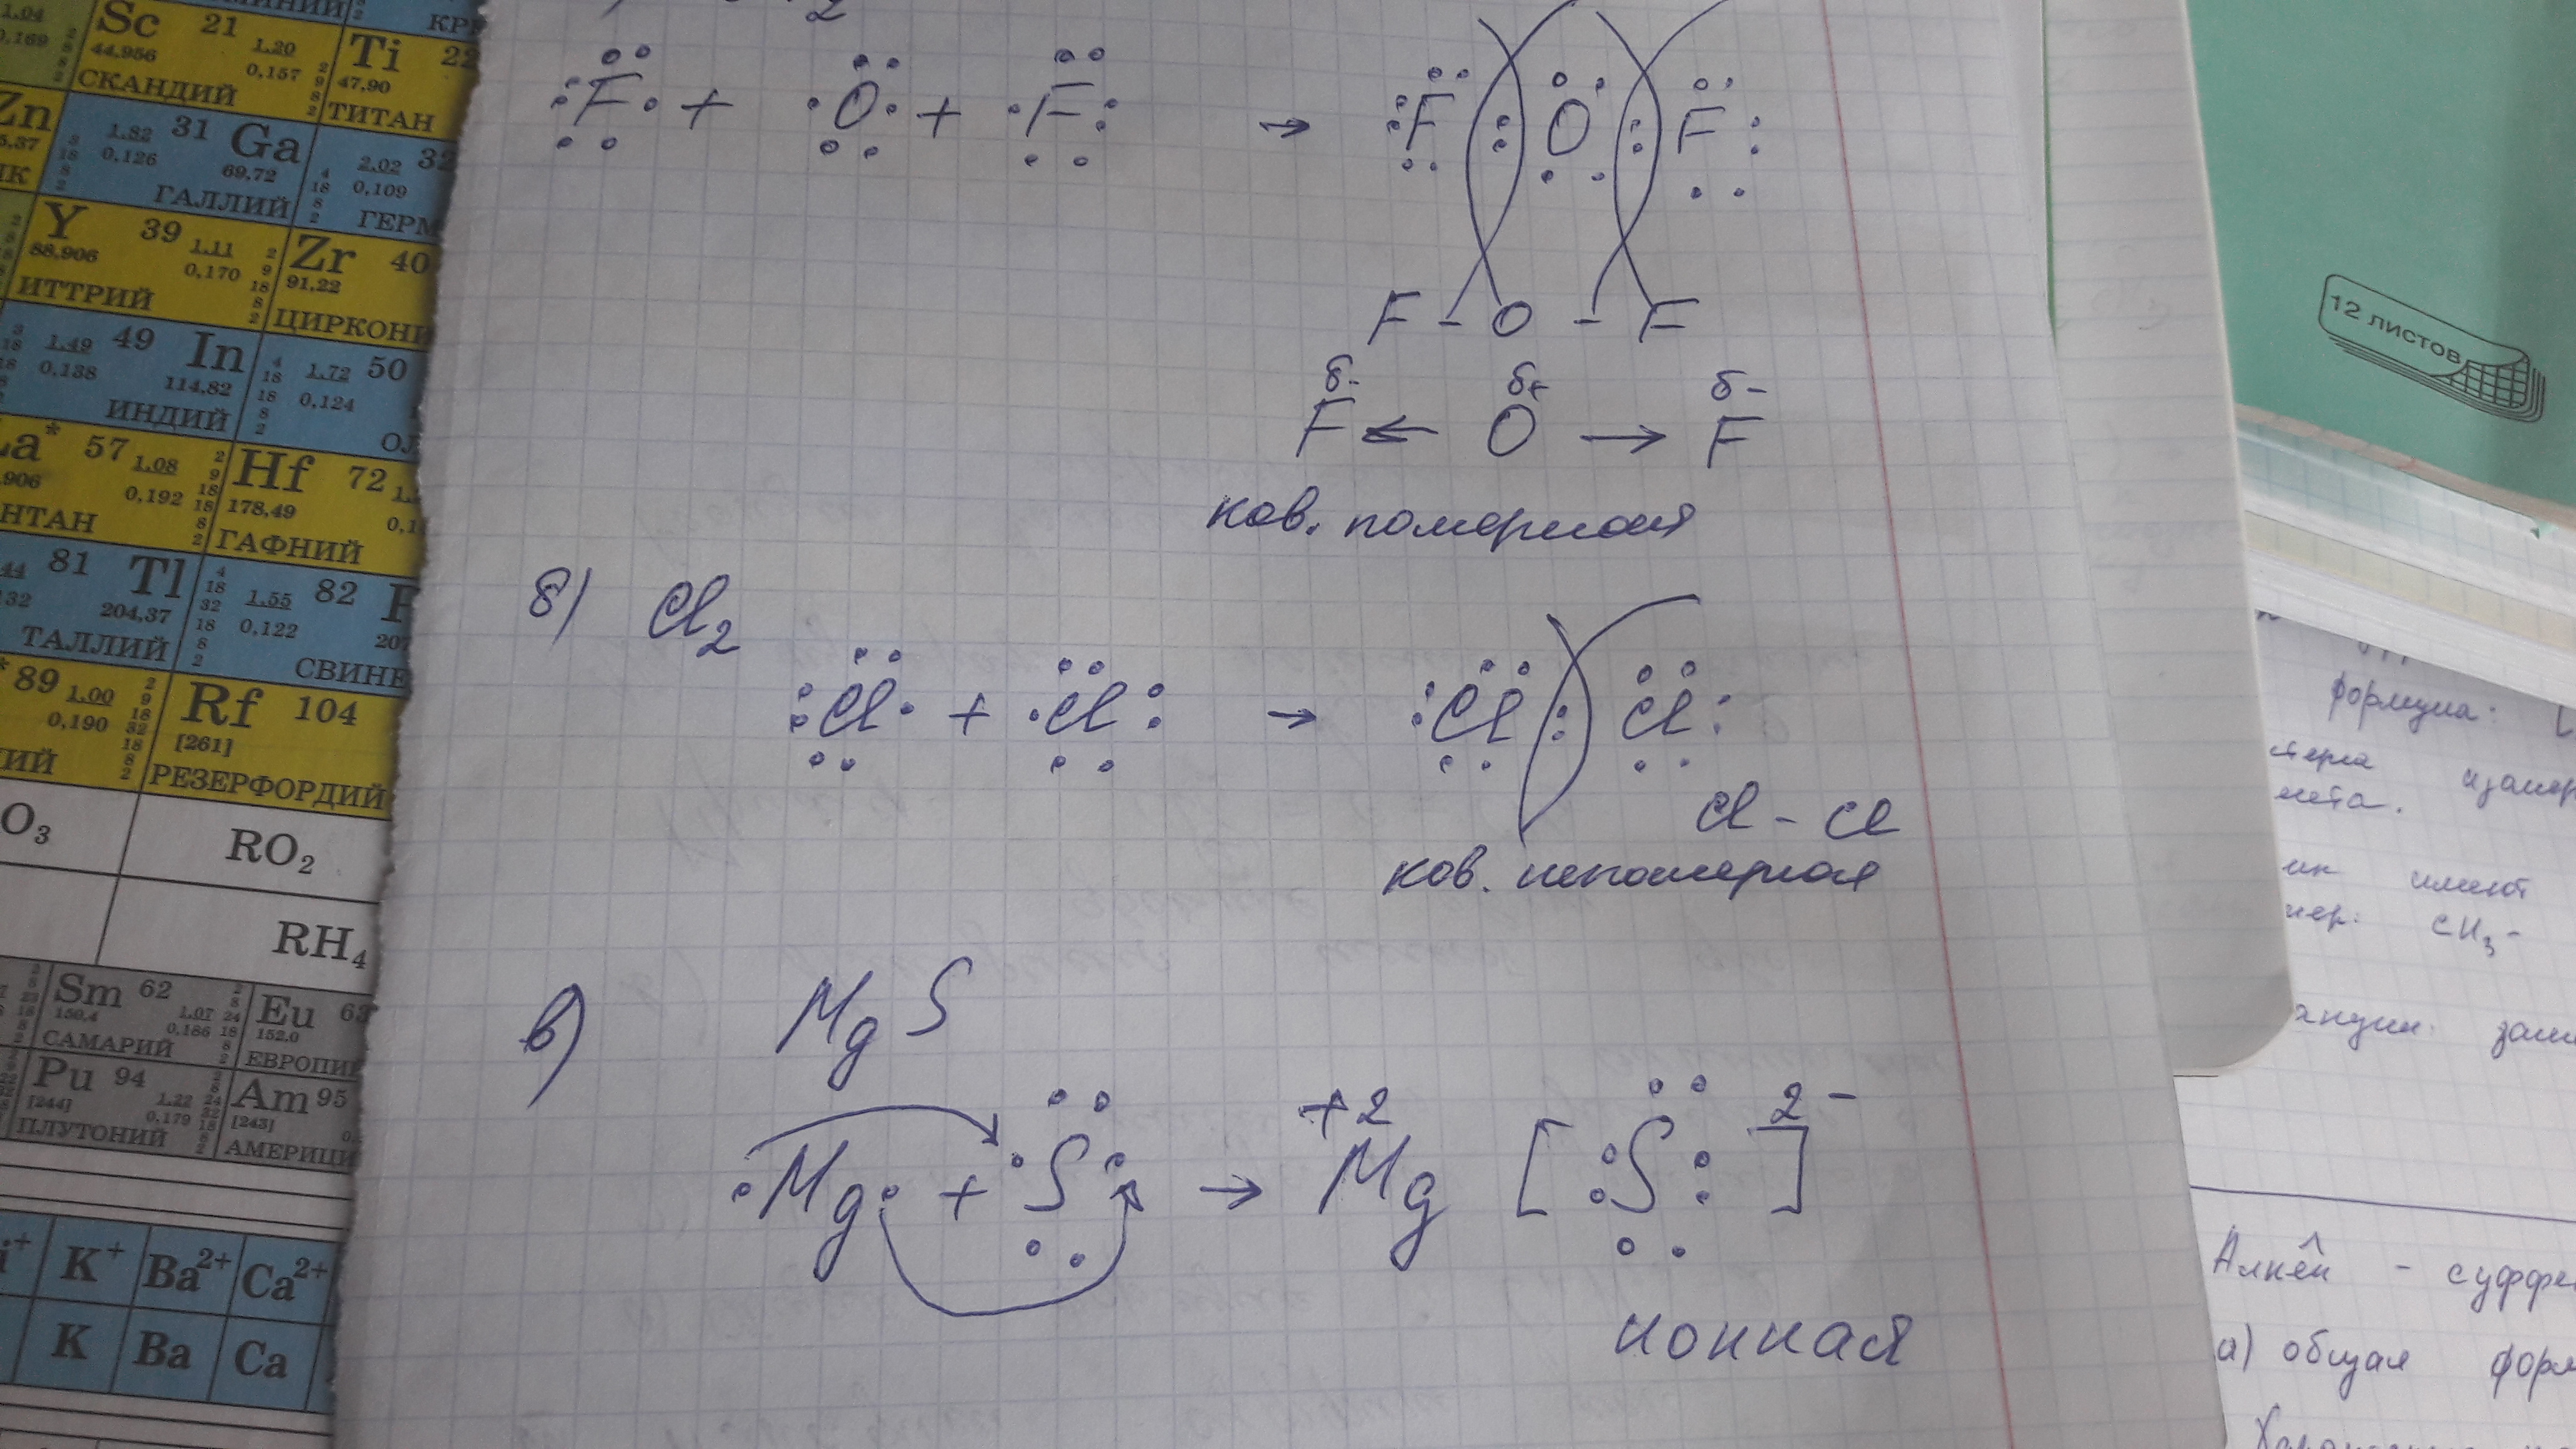 1.04
0.169
Sc 21
44,956
1.20
0,157
СКАНДИЙ
Ti 22
47,90
ТИТАН
Zn
5,37
31 Ga
1.82
0,126
69,72
ГАЛЛИЙ
32
2.02
0,109
ГЕРМ
Y 39
88,906
1.11
0,170
ИТТРИЙ
Zr 40
91,22
ЦИРКОНИ
49 In
1.49
0,138
114,82
ИНДИЙ
50
1.72
0,124
ОЛ
La* 57
.906
1.08
0,192
НТАН
Hf 72
178,49
ГАФНИЙ
81 Tl
204,37
ТАЛЛИЙ
82
1.55
0,122
207
СВИНЕ
* 89
1.00
0,190
Rf 104
[261]
РЕЗЕРФОРДИЙ
O3
RO2
RH4
Sm 62
150,4
1.07
0,186
САМАРИЙ
Eu 63
152,0
ЕВРОПИ
Pu 94
[244]
1.22
0,179
ПЛУТОНИЙ
Am 95
[243]
АМЕРИЦИ
K+ Ba2+ Ca2+
K Ba Ca
2
F + O + F → F : O : F
F - O - F
δ- δ+ δ-
F ← O → F
ков. полярная
б) Cl2
Cl + Cl → Cl : Cl
Cl - Cl
ков. неполярная
в) MgS
Mg + S → +2 Mg [S] 2-
ионная
12 ЛИСТОВ
формула:
имеют
CH3-
Алкен - суффе
а) общая форм